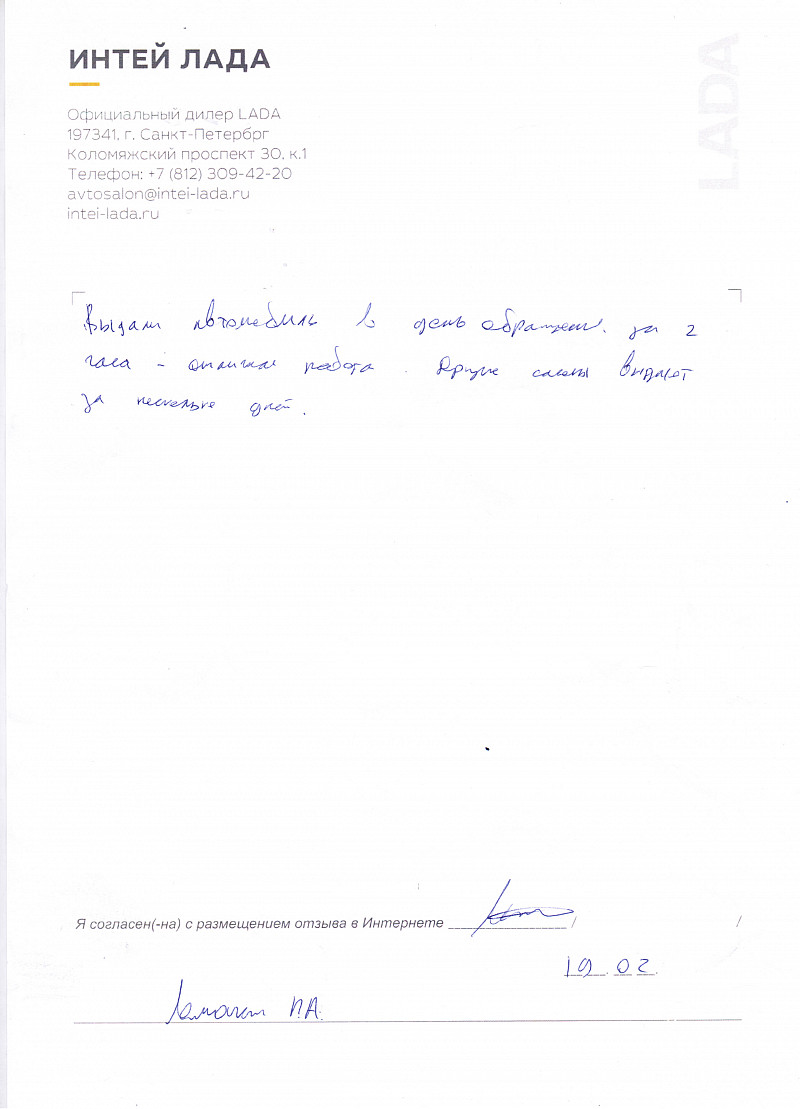 ИНТЕЙ ЛАДА
LADA
Официальный дилер LADA
197341, г. Санкт-Петербрг
Коломяжский проспект 30, к.1
Телефон: +7 (812) 309-42-20
avtosalon@intei-lada.ru
intei-lada.ru
Выдали автомобиль в день обращения. за 2
часа - отличная работа. Другие салоны выдают
за несколько дней.
Я согласен(-на) с размещением отзыва в Интернете / /
19.02.
П.А.